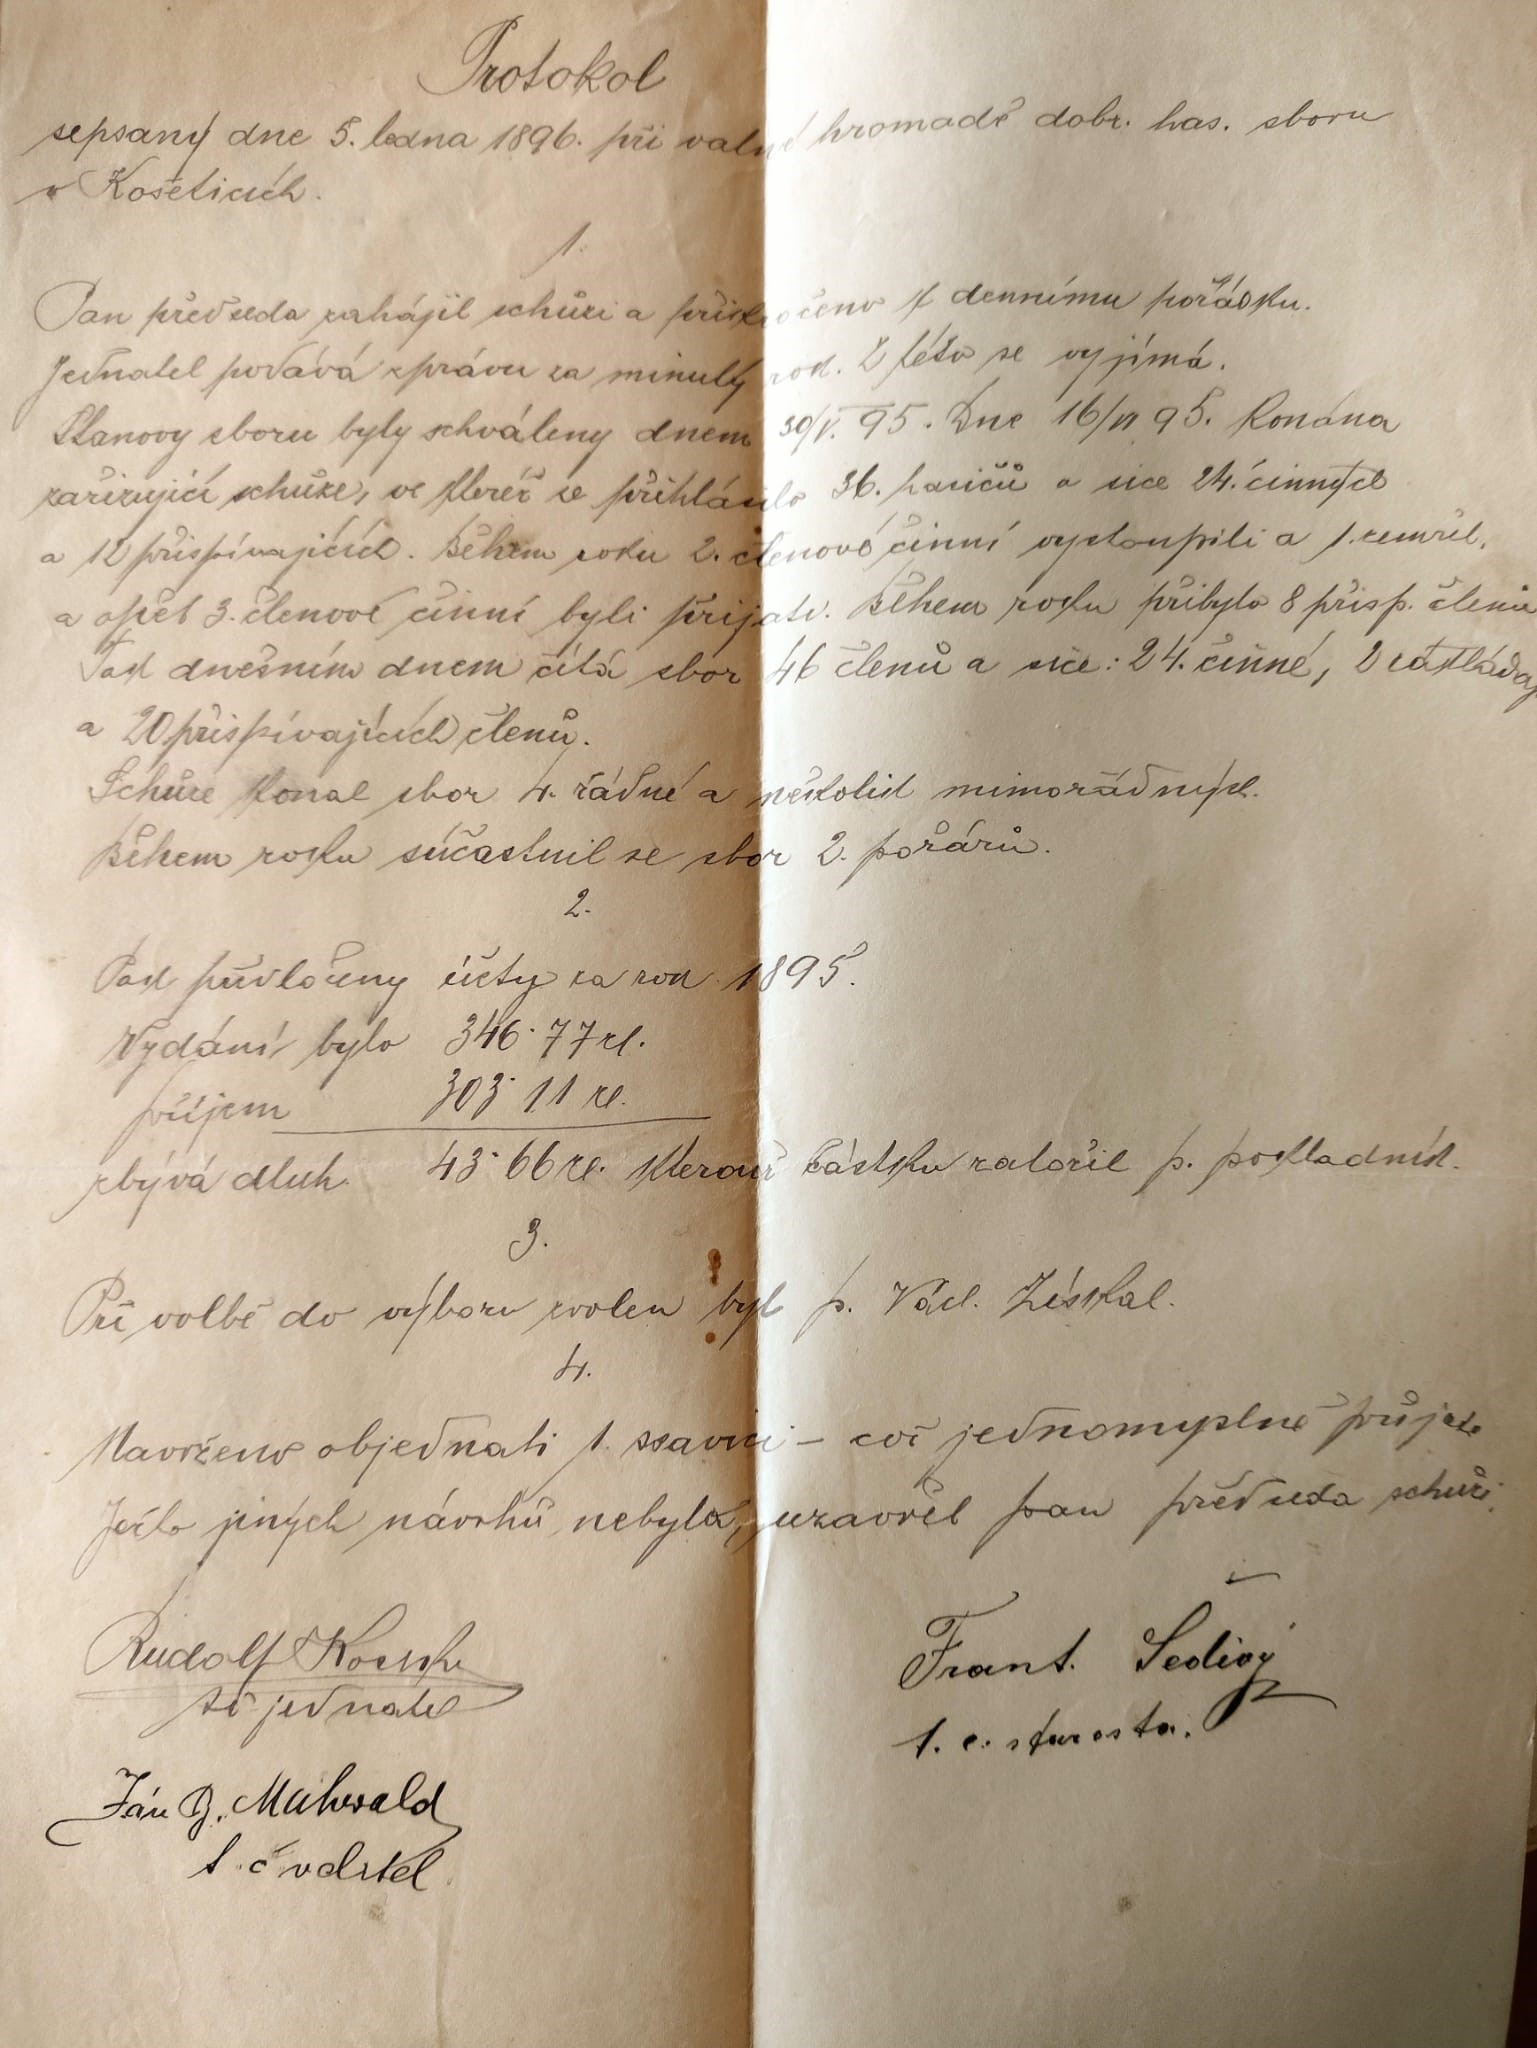 Protokol
sepsaný dne 5. ledna 1896. při valné hromadě dobr. has. sboru
v Košeticích.
1.
Pan předseda zahájil schůzi a přikročeno k dennímu pořádku.
Jednatel podává zprávu za minulý rok. Z této se vyjímá.
Stanovy sboru byly schváleny dnem 30/V. 95. Dne 16/VI 95. konána
zařizující schůze, ve kteréž se přihlásilo 36. hasičů a sice 24. činných
a 12 přispívajících. Během roku 2. členové činní vystoupili a 1. zemřel,
a opět 3. členové činní byli přijati. Během roku přibylo 8 přisp. členů
Tak dnešním dnem čítá sbor 46 členů a sice: 24. činné, 2 zakládaj
a 20 přispívajících členů.
Schůze konal sbor 4. řádné a několik mimořádných.
Během roku súčastnil se sbor 2. požárů.
2.
Pak předloženy účty za rok 1895.
Vydání bylo 346·77 zl.
příjem 303·11 zl.
zbývá dluh 43·66 zl. kterouž částku založil p. pokladník.
3.
Při volbě do výboru zvolen byl p. Václ. Získal.
4.
Navrženo objednati 1. ssavici – což jednomyslně přijato
Ježto jiných návrhů nebylo, uzavřel pan předseda schůzi.
Rudolf
t č jednatel
Frant. Šedivý
t. č. starosta.
Ján B. Muhwald
t. č velitel